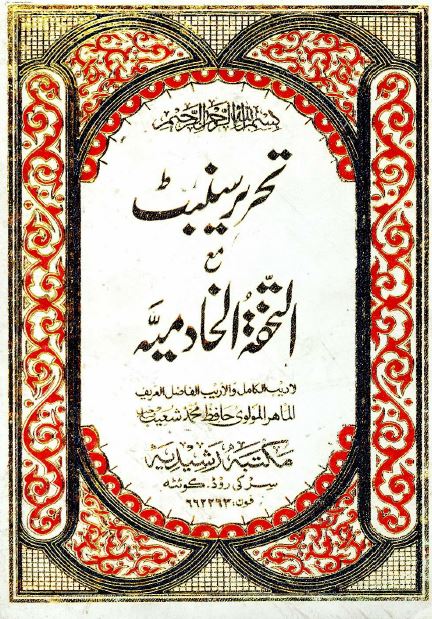 بسم الله الرحمن الرحيم
تحریر سنبٹ
مع
التحفۃ الخادمیہ
لادیب الکامل والاریب الفاضل العریف
الماهر المولوی حافظ محمد شعیب
مکتبه رشیدیه
سرکی روڈ کوئٹه
فون: ۶۶۲۲۶۳